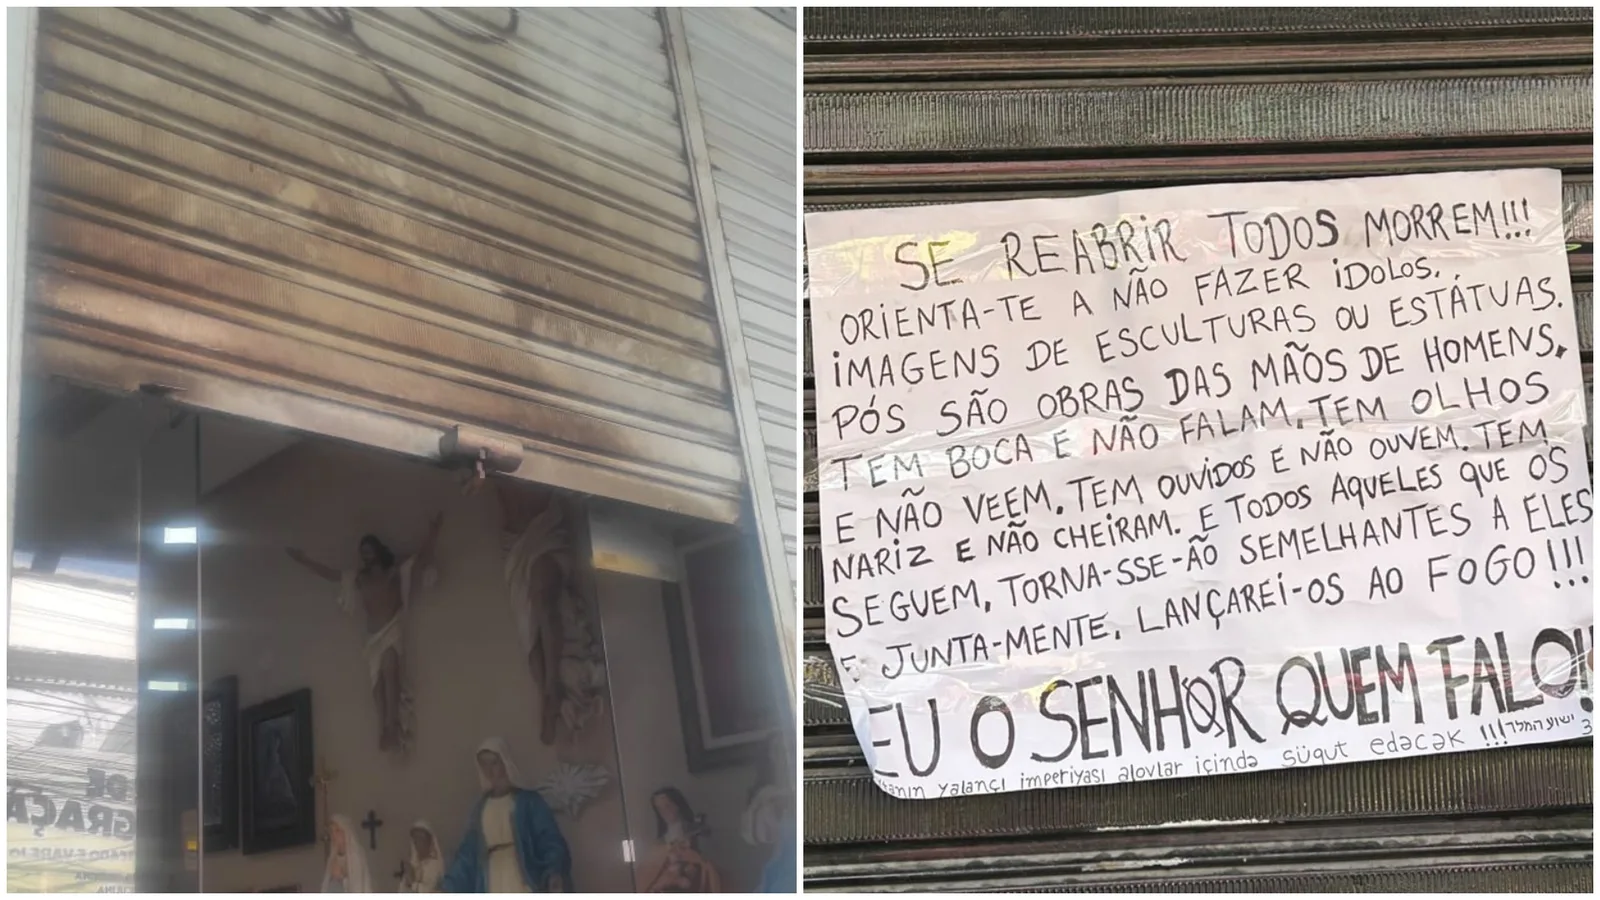 DE
GRAÇA
SE REABRIR TODOS MORREM!!!
ORIENTA-TE A NÃO FAZER IDOLOS.
IMAGENS DE ESCULTURAS OU ESTÁTUAS.
PÓS SÃO OBRAS DAS MÃOS DE HOMENS.
TEM BOCA E NÃO FALAM. TEM OLHOS
E NÃO VEEM. TEM OUVIDOS E NÃO OUVEM. TEM
NARIZ E NÃO CHEIRAM. E TODOS AQUELES QUE OS
SEGUEM. TORNA-SSE-ÃO SEMELHANTES A ELES
E JUNTA-MENTE. LANÇAREI-OS AO FOGO!!!
EU O SENHOR QUEM FALO!!
yalançı imperiyası alovlar içində süqut edəcək !!! ישוע המלך 3